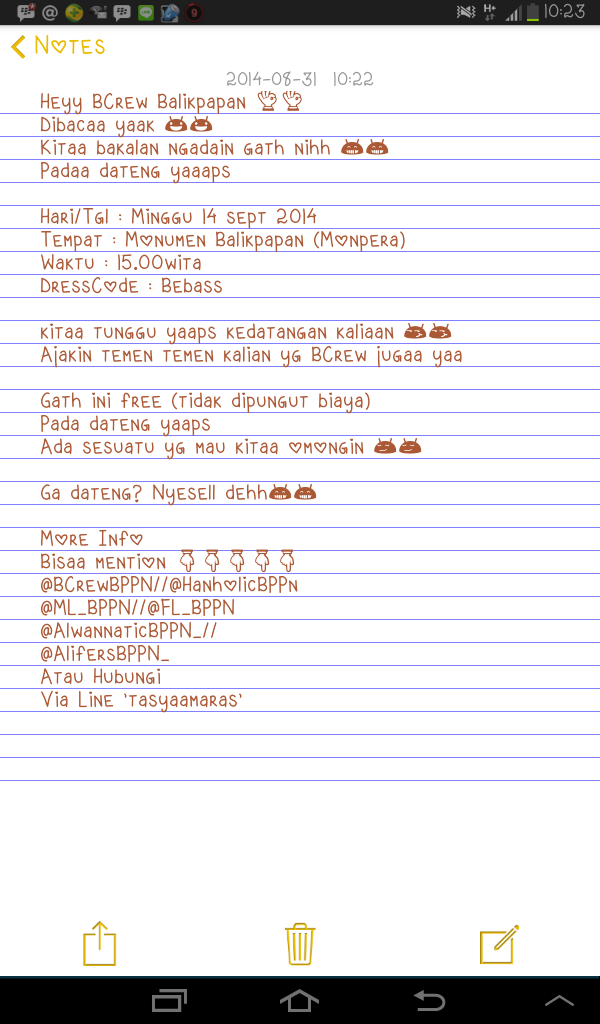 10:23
Notes
2014-08-31 10:22
Heyy BCrew Balikpapan 👌👌
Dibacaa yaak
Kitaa bakalan ngadain gath nihh
Padaa dateng yaaaps
Hari/Tgl : Minggu 14 sept 2014
Tempat : Monumen Balikpapan (Monpera)
Waktu : 15.00wita
DressCode : Bebass
kitaa tunggu yaaps kedatangan kaliaan
Ajakin temen temen kalian yg BCrew jugaa yaa
Gath ini free (tidak dipungut biaya)
Pada dateng yaaps
Ada sesuatu yg mau kitaa omongin
Ga dateng? Nyesell dehh
More Info
Bisaa mention 👇👇👇👇👇
@BCrewBPPN//@HanholicBPPn
@ML_BPPN//@FL_BPPN
@AlwannaticBPPN_//
@AlifersBPPN_
Atau Hubungi
Via Line 'tasyaamaras'